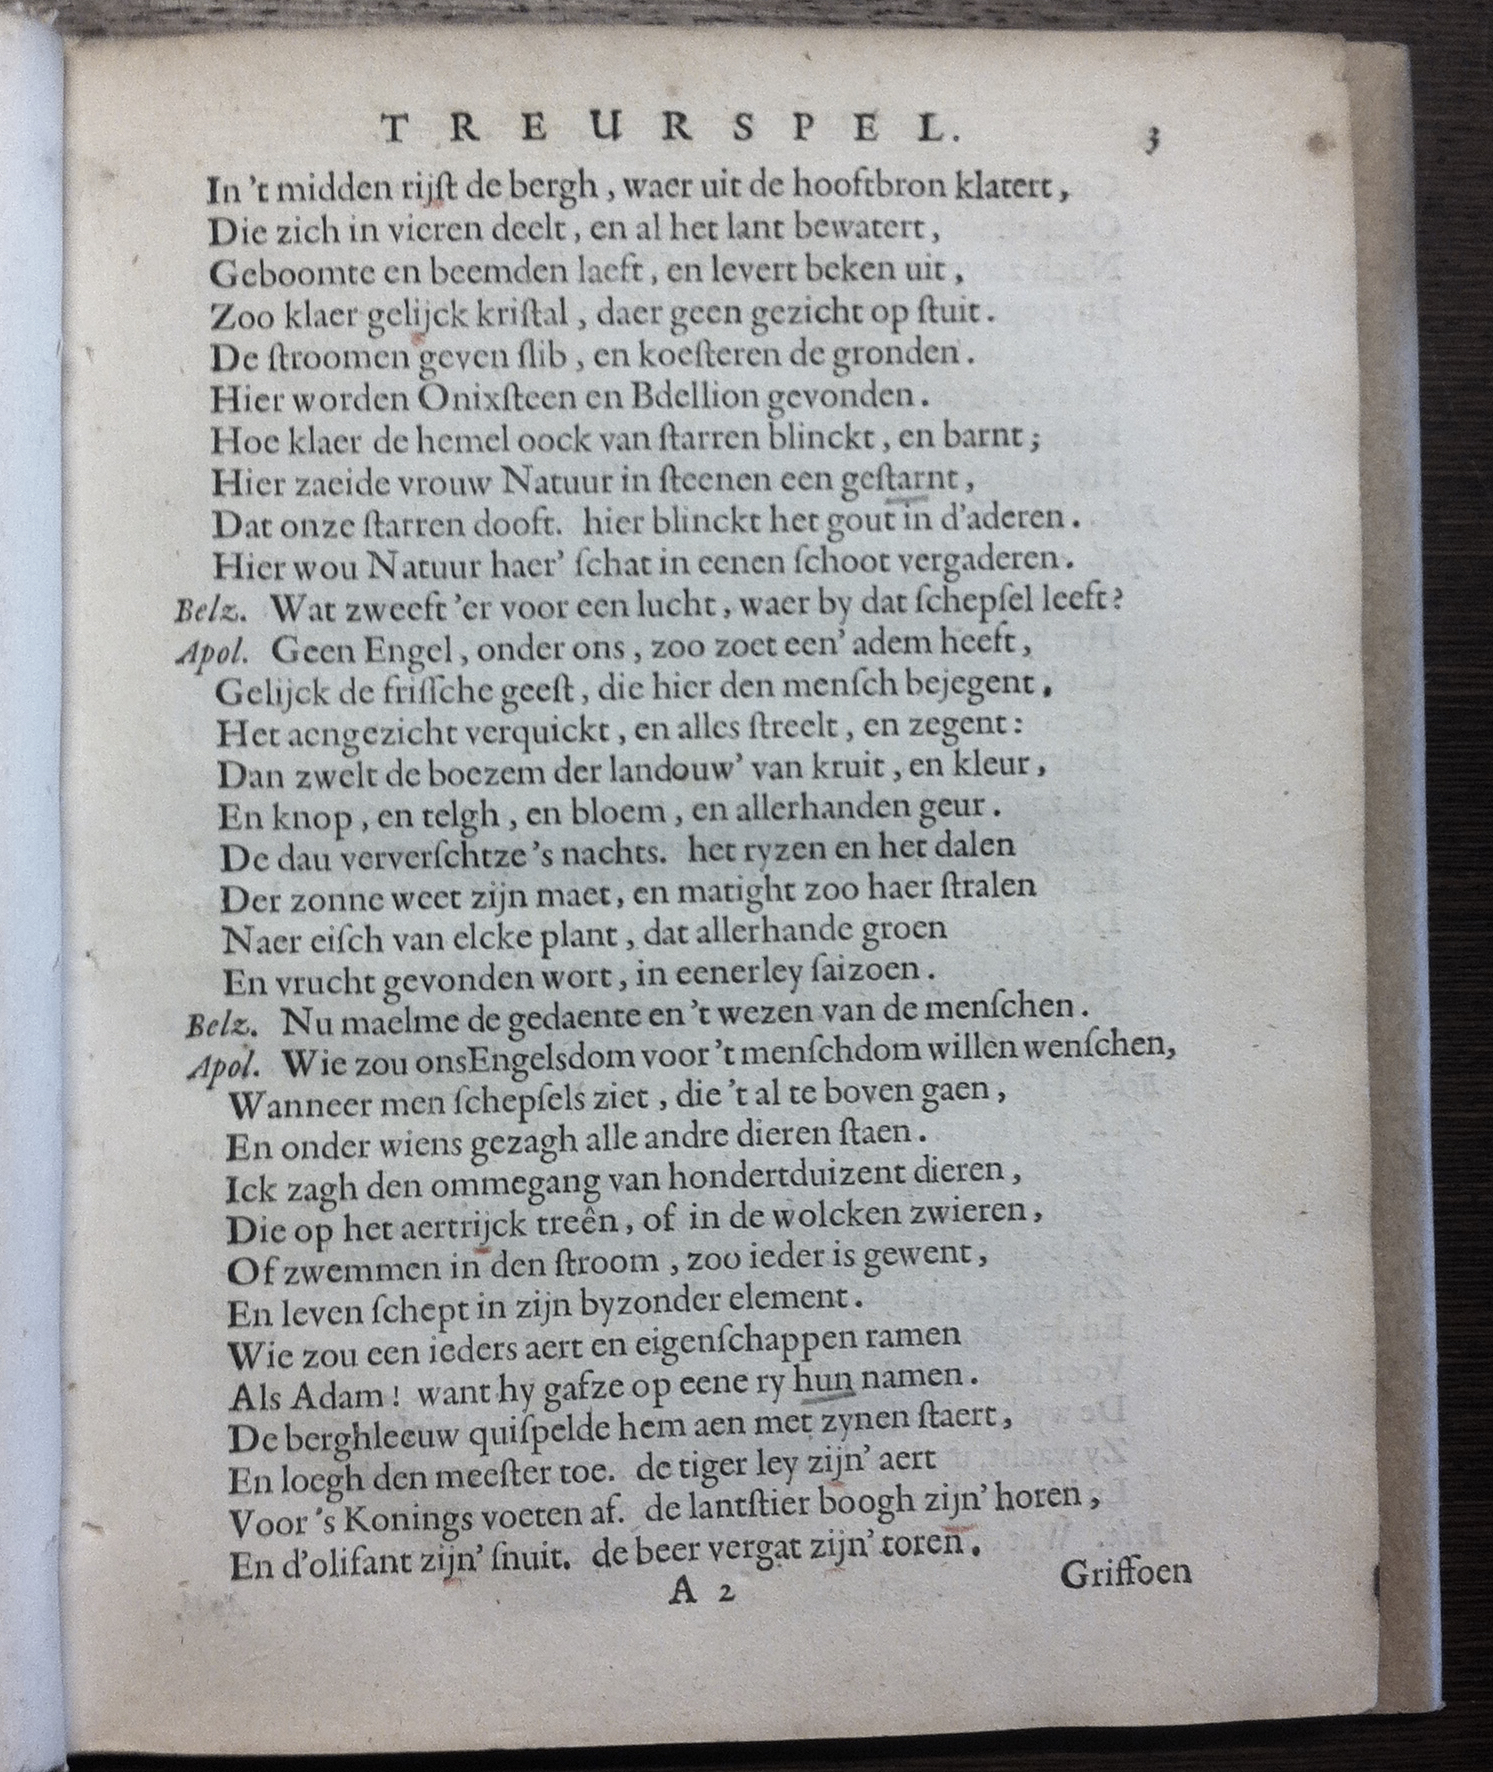 TREURSPEL. 3
In 't midden rijſt de bergh, waer uit de hooftbron klatert,
Die zich in vieren deelt, en al het lant bewatert,
Geboomte en beemden laeft, en levert beken uit,
Zoo klaer gelijck kriſtal, daer geen gezicht op ſtuit.
De ſtroomen geven ſlib, en koeſteren de gronden.
Hier worden Onixſteen en Bdellion gevonden.
Hoe klaer de hemel oock van ſtarren blinckt, en barnt;
Hier zaeide vrouw Natuur in ſteenen een geſtarnt,
Dat onze ſtarren dooft. hier blinckt het gout in d'aderen.
Hier wou Natuur haer' ſchat in eenen ſchoot vergaderen.
Belz. Wat zweeft 'er voor een lucht, waer by dat ſchepſel leeft?
Apol. Geen Engel, onder ons, zoo zoet een' adem heeft,
Gelijck de friſſche geeſt, die hier den menſch bejegent,
Het aengezicht verquickt, en alles ſtreelt, en zegent:
Dan zwelt de boezem der landouw' van kruit, en kleur,
En knop, en telgh, en bloem, en allerhanden geur.
De dau ververſchtze 's nachts. het ryzen en het dalen
Der zonne weet zijn maet, en matight zoo haer ſtralen
Naer eiſch van elcke plant, dat allerhande groen
En vrucht gevonden wort, in eenerley ſaizoen.
Belz. Nu maelme de gedaente en 't wezen van de menſchen.
Apol. Wie zou onsEngelsdom voor 't menſchdom willen wenſchen,
Wanneer men ſchepſels ziet, die 't al te boven gaen,
En onder wiens gezagh alle andre dieren ſtaen.
Ick zagh den ommegang van hondertduizent dieren,
Die op het aertrijck treên, of in de wolcken zwieren,
Of zwemmen in den ſtroom, zoo ieder is gewent,
En leven ſchept in zijn byzonder element.
Wie zou een ieders aert en eigenſchappen ramen
Als Adam! want hy gafze op eene ry hun namen.
De berghleeuw quiſpelde hem aen met zynen ſtaert,
En loegh den meeſter toe. de tiger ley zijn' aert
Voor 's Konings voeten af. de lantſtier boogh zijn' horen,
En d'olifant zijn' ſnuit. de beer vergat zijn' toren.
A 2 Griffoen